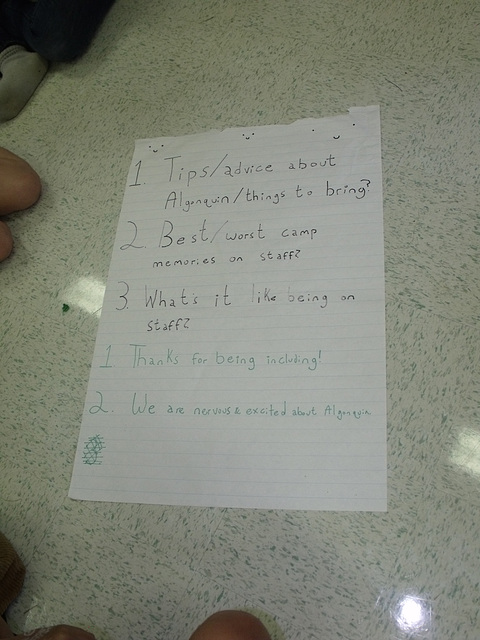 1. Tips/advice about
Algonquin/things to bring?
2. Best/worst camp
memories on staff?
3. Whats it like being on
staff?
1 Thanks for being including!
2. We are nervous & excited about Algonquin